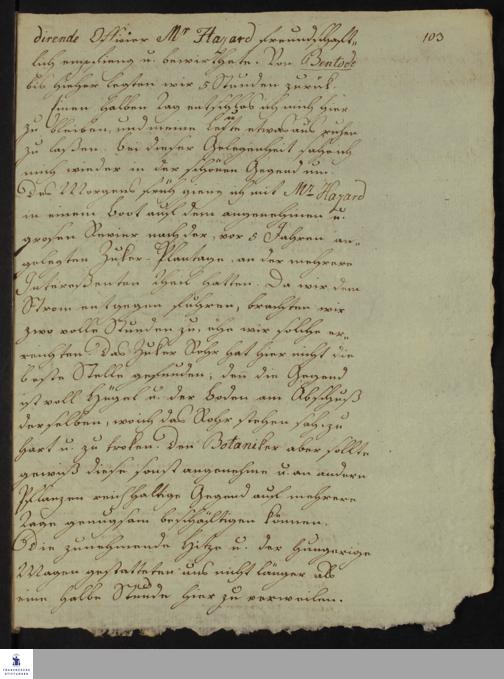 dirende Officier Mr Hazard freundschaft-
103
lich empfieng u. bewirthete. Von Bentode
bis hieher legten wir 5 Stunden zurük.
Einen halben Tag entschlos ich mich hier
zu bleiben, und meine Leute etwas aus ruhen
zu laßen. bei dieser Gelegenheit sah ich
mich wieder in der schönen Gegend um.
Des Morgens früh gieng ich mit Mr Hazard
in einem Boot auf dem angenehmen u.
großen Revier nach der, vor 5 Jahren an-
gelegten Zuker-Plantage, an der mehrere
Interessenten theil hatten. Da wir dem
Strom entgegen fuhren, brachten wir
zwo volle Stunden zu, ehe wir solche er-
reichten. Das Zuker Rohr hat hier nicht die
beste Stelle gefunden; den die Gegend
ist voll Hügel u. der Boden am Abschuß
derselben, wo ich das Rohr stehen sah, zu
hart u. zu troken. Den Botaniker aber sollte
gewiß diese sonst angenehme u. an andern
Pflanzen reichhaltige Gegend auf mehrere
Tage genugsam beschäftigen können.
Die zunehmende Hitze u. der hungerige
Magen gestatteten uns nicht länger als
eine halbe Stunde hier zu verweilen.
FRANCKESCHE
STIFTUNGEN